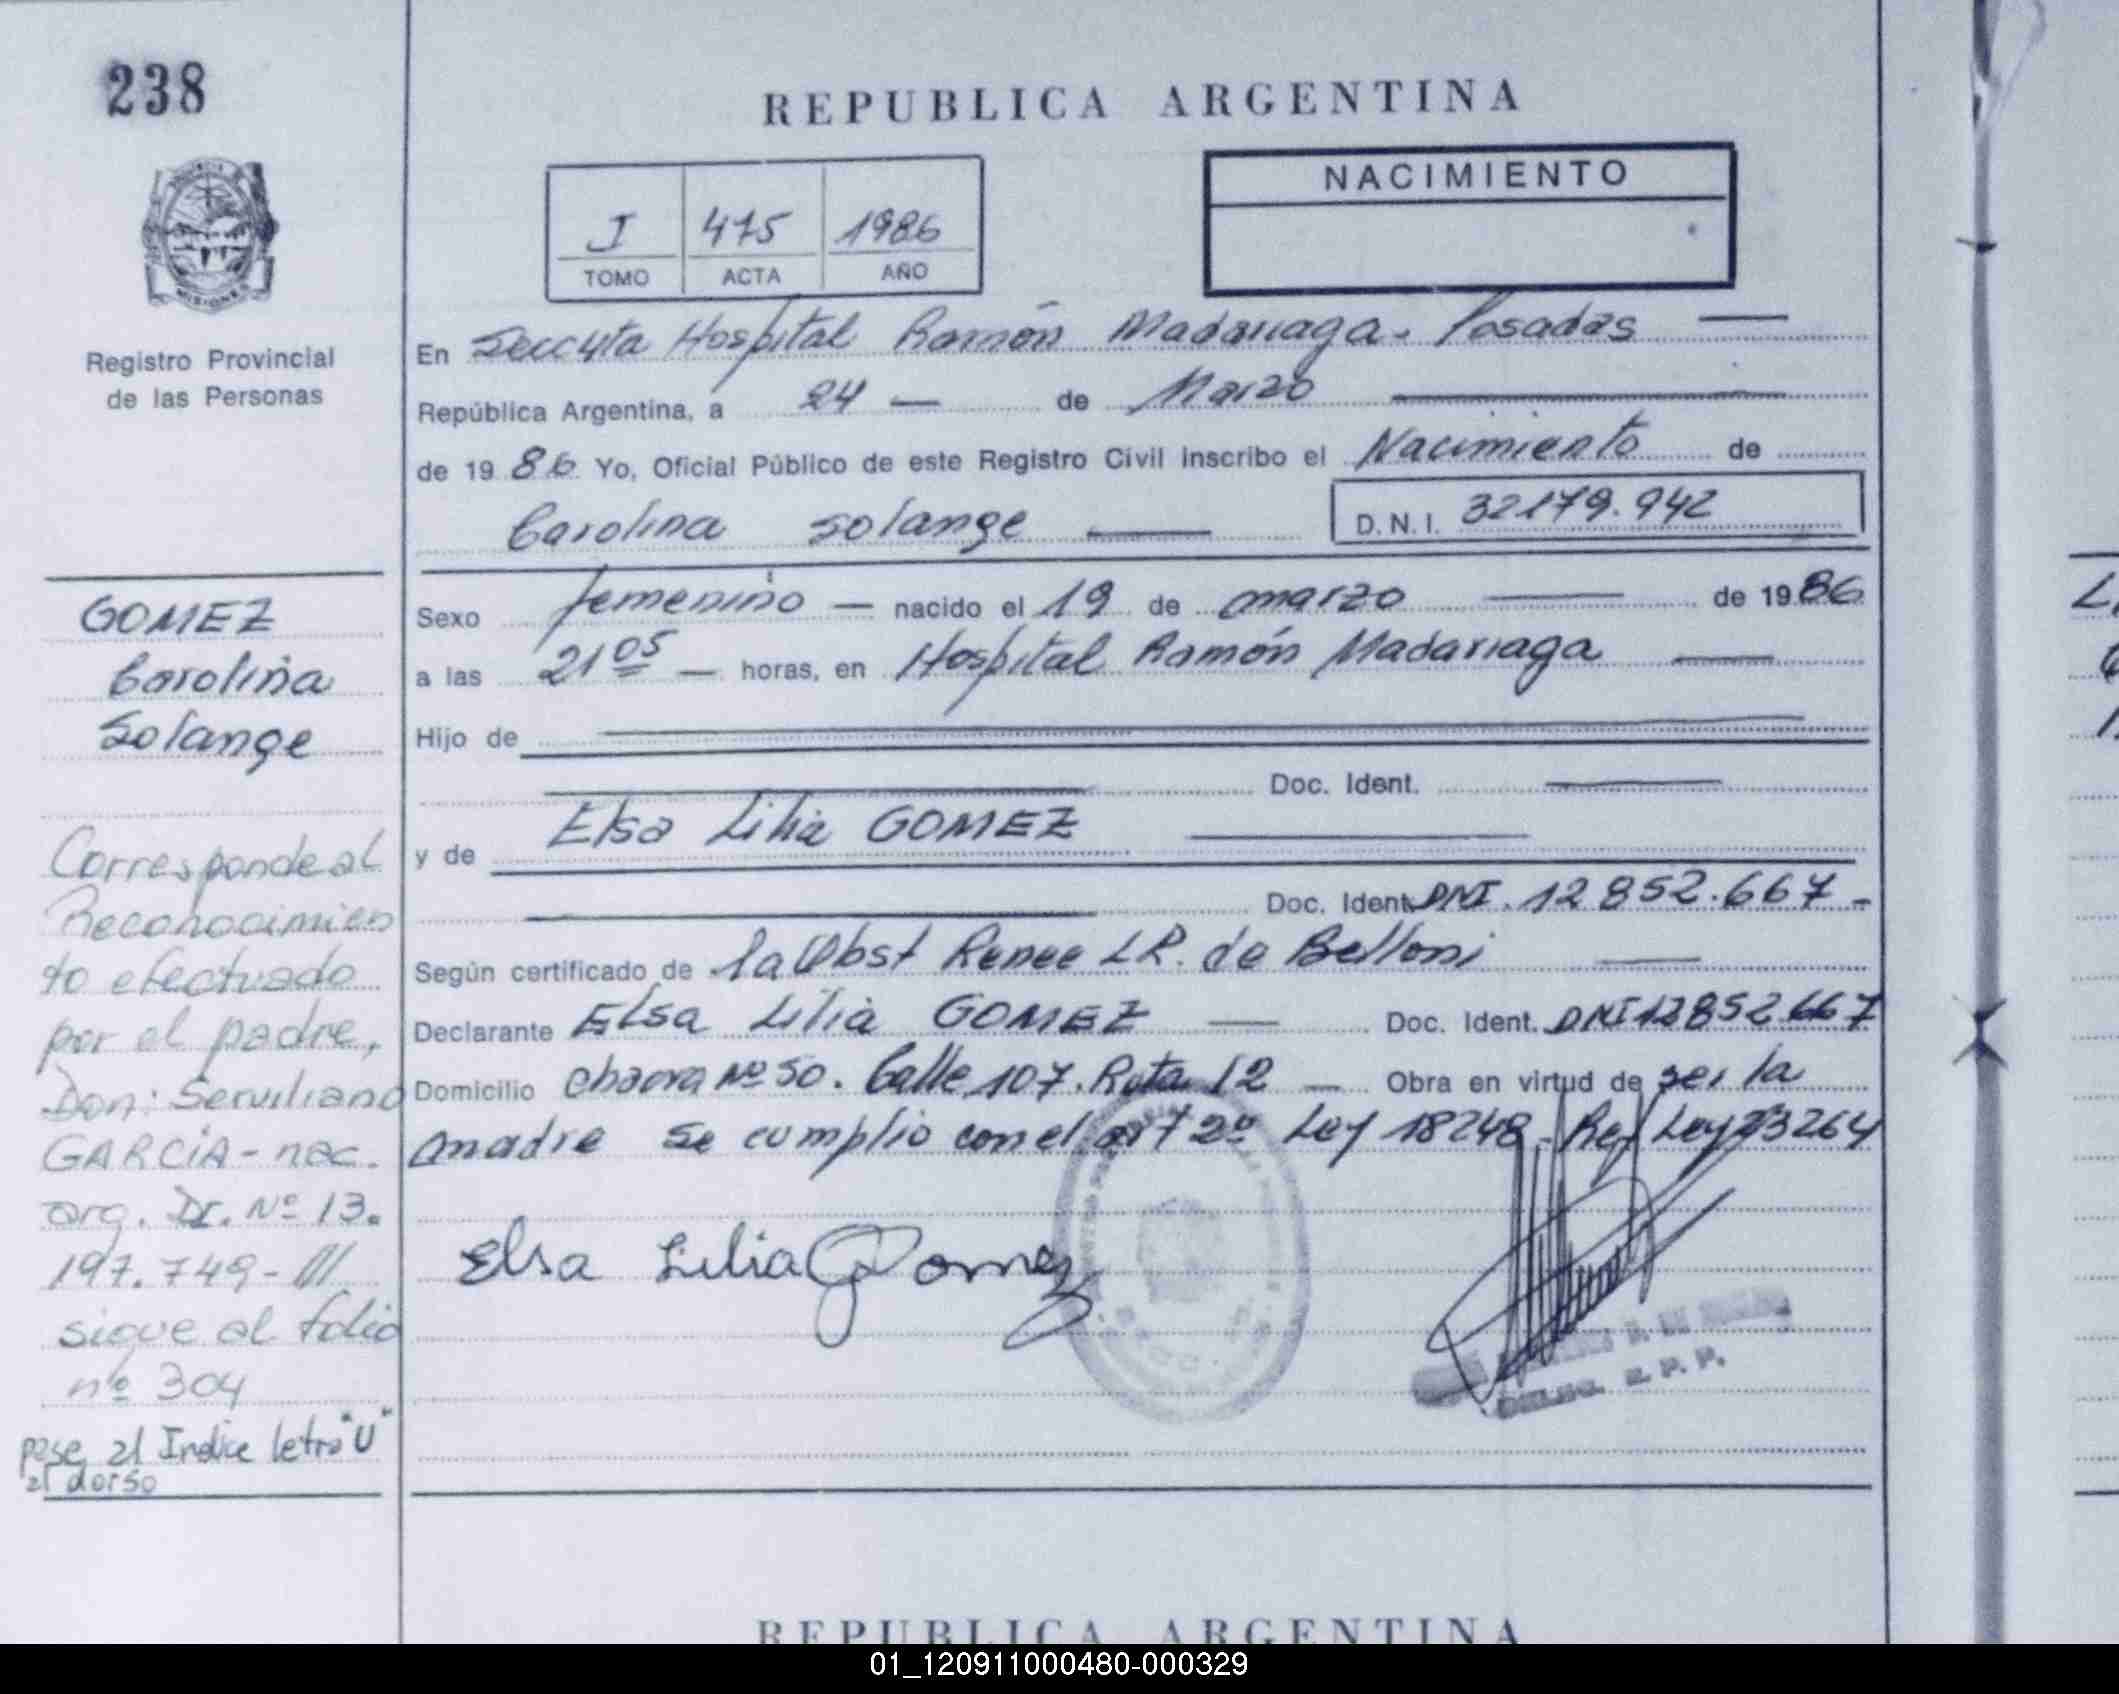 238
REPUBLICA ARGENTINA
MISIONES
Registro Provincial
de las Personas
NACIMIENTO
I 475 1986
TOMO ACTA AÑO
En Seccita Hospital Ramón Madariaga. Posadas
República Argentina, a 24 de Marzo
de 1986 Yo, Oficial Público de este Registro Civil inscribo el Nacimiento de
Carolina Solange D.N.I. 32179.942
GOMEZ
Carolina
Solange
Sexo femenino nacido el 19 de marzo de 1986
a las 21 05 horas, en Hospital Ramón Madariaga
Hijo de
Doc. Ident.
y de Elsa Lilia GOMEZ
Doc. Ident. DNI. 12852.667-
Según certificado de la Obst Renee L R. de Belloni
Declarante ELsa Lilia GOMEZ Doc. Ident. DNI 12852667
Domicilio chacra Nº 50. Calle 107. Ruta 12 Obra en virtud de ser la
madre se cumplio con el art 2º Ley 18248. Ref Ley 23264
Elsa Lilia Gomez
R. P. P.
Corresponde al
Reconocimien
to efectuado
por el padre,
Don: Serviliano
GARCIA - nac.
arg. Dr. Nº 13.
197.749-///
sigue al folio
nº 304
pase al Indice letra "U"
al dorso
REPUBLICA ARGENTINA
01_120911000480-000329